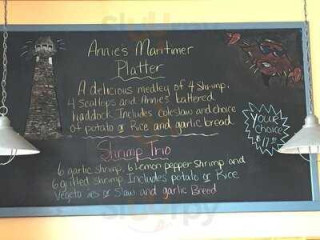 Annie's Maritimer
Platter
A delicious medley of 4 shrimp,
4 scallops and Annies battered
haddock. Includes coleslaw and choice
of potato or Rice and garlic bread.
Shrimp Trio
6 garlic shrimp, 6 lemon pepper shrimp and
6 grilled shrimp. Includes potato or Rice
Vegetables or Slaw and garlic Bread
Your
choice
Sluurpy
Sluurpy